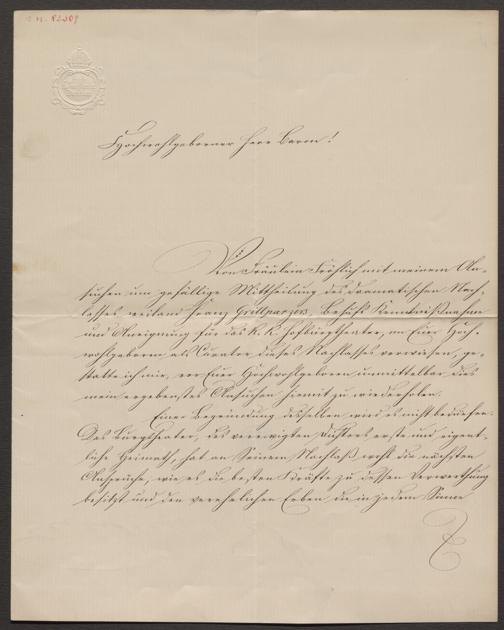 I. N. 82309
Hochwohlgeborner Herr Baron!
Von Fräulein Fröhlich mit meinem An-
suchen um gefällige Mittheilung des dramatischen Nach-
lasses weiland Franz Grillparzers, behufs Kenntnißnahme
und Aneignung für das K. K. Hofburgtheater, an Euer Hoch-
wohlgeboren als Curator dieses Nachlasses verwiesen, ge-
statte ich mir, vor Euer Hochwohlgeboren unmittelbar das
mein ergebenstes Ansuchen hiemit zu wiederholen.
Einer Begründung desselben wird es nicht bedürfen.
Das Burgtheater, des verewigten Dichters erste und eigent-
liche Heimath, hat an Seinem Nachlaß wohl die nächsten
Ansprüche, wie es die besten Kräfte zu dessen Verwerthung
besitzt und den verehrlichen Erben die in jedem Sinne